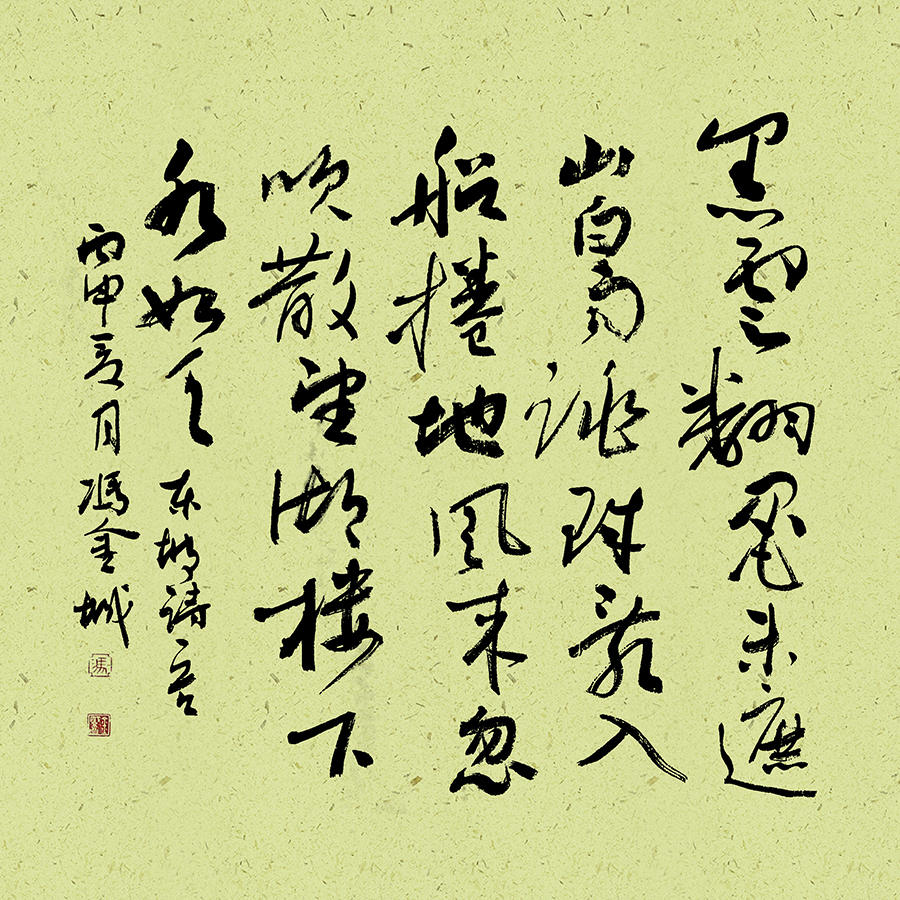 黑雲翻墨未遮
山白雨跳珠亂入
船捲地風來忽
吹散望湖樓下
水如天 東坡詩一首
丙申夏月 馮金城
馮